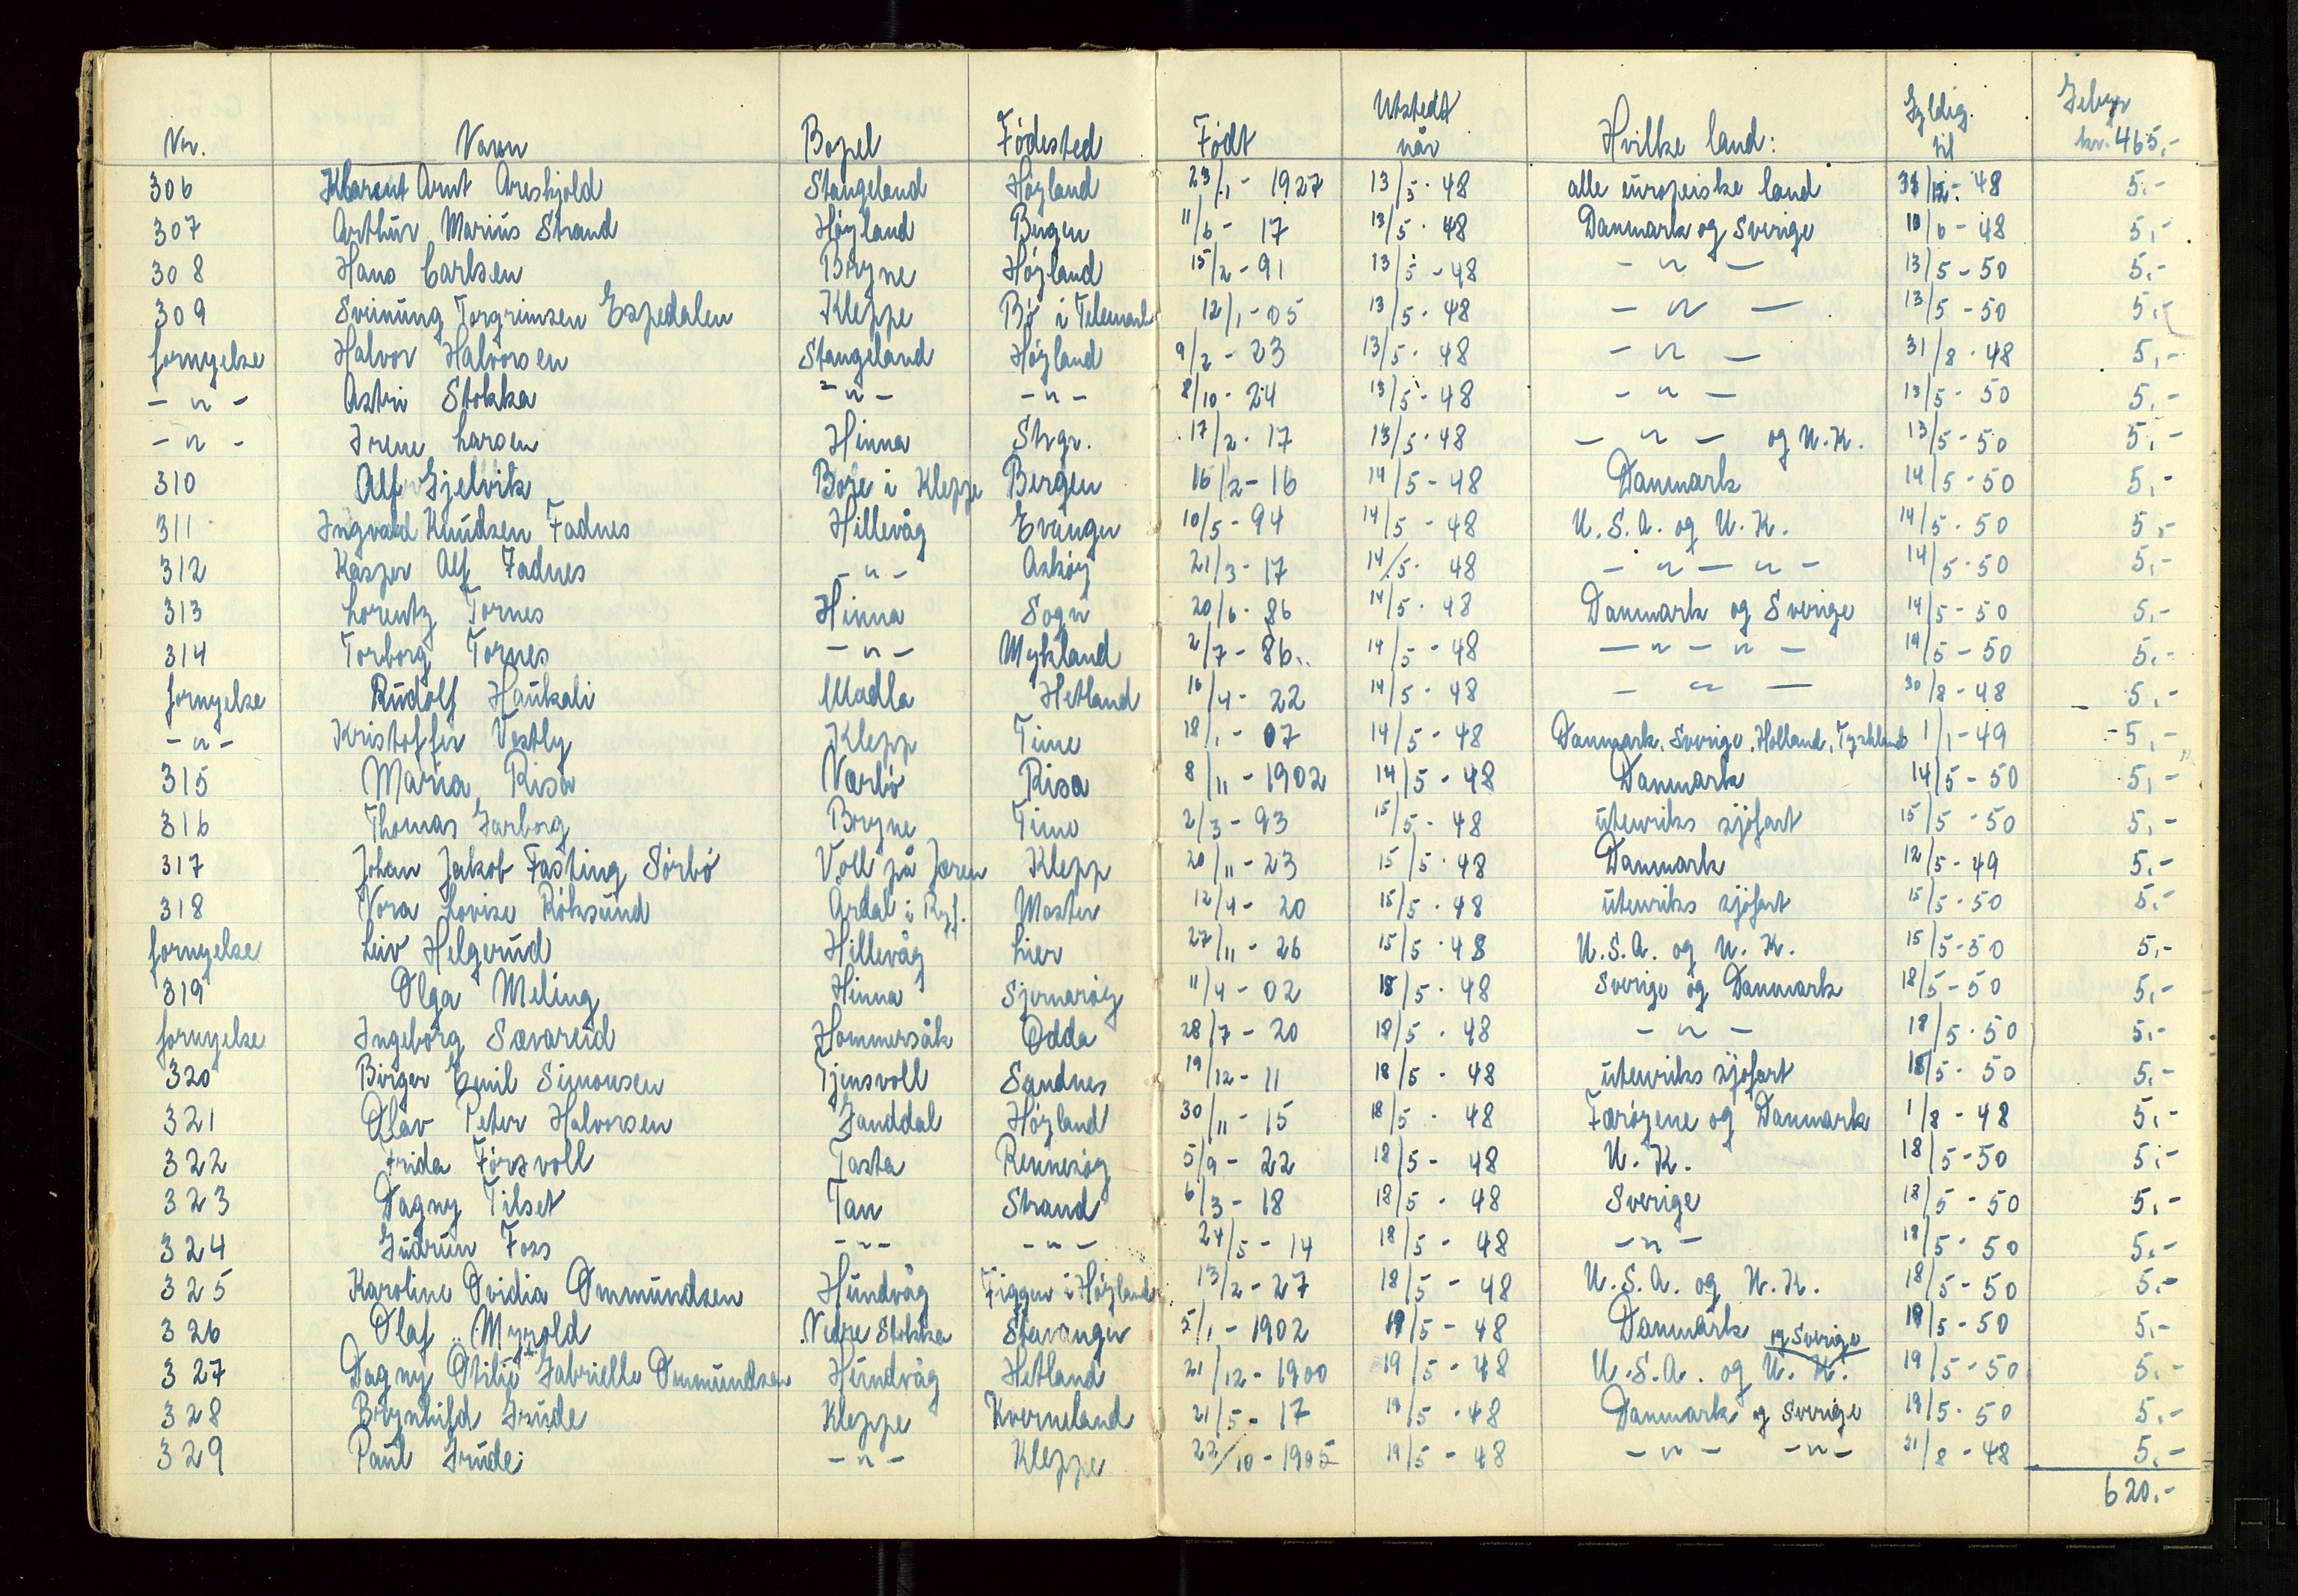 Nr. Navn Bopel Födested Födt Utstedt når Hvilke land: Gyldig til Gebyr kr. 465,-
306 Klarent Arnt Areskjold Stangeland Höyland 23/1 - 1927 13/5 - 48 alle europeiske land 31/12 - 48 5.-
307 Arthur Marius Strand Höyland Bergen 11/6 - 17 13/5 - 48 Danmark og Sverige 10/6 - 48 5,-
308 Hans Carlsen Bryne Höyland 15/2 - 91 13/5 - 48 - " - 13/5 - 50 5,-
309 Sveinung Torgrimsen Espedalen Kleppe Bö i Telemark 12/1 - 05 13/5 - 48 - " - 13/5 - 50 5,-
fornyelse Halvor Halvorsen Stangeland Höyland 9/2 - 23 13/5 - 48 - " - 31/8 - 48 5,-
- " - Astri Stokka - " - - " - 8/10 - 24 13/5 - 48 - " - 13/5 - 50 5,-
- " - Irene Larsen Hinna Stvgr. 17/2 - 17 13/5 - 48 - " - og U.K. 13/5 - 50 5,-
310 Alf Gjelvik Bore i Kleppe Bergen 16/2 - 16 14/5 - 48 Danmark 14/5 - 50 5,-
311 Ingvald Knudsen Fadnes Hillevåg Evanger 10/5 - 94 14/5 - 48 U.S.A. og U.K. 14/5 - 50 5,-
312 Kasper Alf Fadnes - " - Asköy 21/3 - 17 14/5 - 48 - " - " - 14/5 - 50 5,-
313 Lorentz Tornes Hinna Sogn 20/6 - 86 14/5 - 48 Danmark og Sverige 14/5 - 50 5,-
314 Torborg Tornes - " - Mykland 2/7 - 86 14/5 - 48 - " - " - 14/5 - 50 5,-
fornyelse Rudolf Haukali Madla Hetland 16/4 - 22 14/5 - 48 - " - 30/8 - 48 5,-
- " - Kristoffer Vestly Klepp Time 18/1 - 07 14/5 - 48 Danmark, Sverige, Holland, Tyskland 1/1 - 49 5,-
315 Maria Risa Nærbö Risa 8/11 - 1902 14/5 - 48 Danmark 14/5 - 50 5,-
316 Thomas Garborg Bryne Time 2/3 - 93 15/5 - 48 utenriks sjöfart 15/5 - 50 5,-
317 Johan Jakob Fasting Sörbö Voll på Jæren Klepp 20/11 - 23 15/5 - 48 Danmark 12/5 - 49 5,-
318 Nora Lovise Röksund Årdal i Ryf. Moster 12/4 - 20 15/5 - 48 utenriks sjöfart 15/5 - 50 5,-
fornyelse Leiv Helgerud Hillevåg Lier 27/11 - 26 15/5 - 48 U.S.A. og U.K. 15/5 - 50 5,-
319 Olga Meling Hinna Sjernaröy 11/4 - 02 18/5 - 48 Sverige og Danmark 18/5 - 50 5,-
fornyelse Ingeborg Sævareid Hommersåk Odda 28/7 - 20 18/5 - 48 - " - 18/5 - 50 5,-
320 Birger Emil Simonsen Tjensvoll Sandnes 19/12 - 11 18/5 - 48 utenriks sjöfart 18/5 - 50 5,-
321 Olav Peter Halvorsen Ganddal Höyland 30/11 - 15 18/5 - 48 Færöyene og Danmark 1/8 - 48 5,-
322 Frida Försvoll Tasta Rennesöy 5/9 - 22 18/5 - 48 U.K. 18/5 - 50 5,-
323 Dagny Tilset Tau Strand 6/3 - 18 18/5 - 48 Sverige 18/5 - 50 5,-
324 Gudrun Foss - " - - " - 24/5 - 14 18/5 - 48 - " - 18/5 - 50 5,-
325 Karoline Ovidia Ommundsen Hundvåg Figgen i Höyland 13/2 - 27 18/5 - 48 U.S.A. og U.K. 18/5 - 50 5,-
326 Olaf Myrold Nedre Stokka Stavanger 5/1 - 1902 19/5 - 48 Danmark og Sverige 19/5 - 50 5,-
327 Dagny Otilie Gabrielle Ommundsen Hundvåg Hetland 21/12 - 1900 19/5 - 48 U.S.A. og U.K. 19/5 - 50 5,-
328 Brynhild Grude Kleppe Kverneland 21/5 - 17 19/5 - 48 Danmark og Sverige 19/5 - 50 5,-
329 Paul Grude - " - Kleppe 22/10 - 1905 19/5 - 48 - " - - " - 21/8 - 48 5,-
620.-